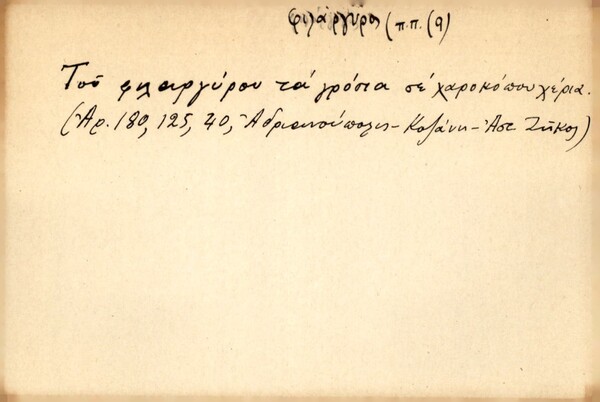 φιλάργυρος (π.π. (9)
Τοῦ φιλαργύρου τά γρόσια σέ χαροκόπου χέρια.
(Ἀρ. 180, 125, 40, Ἀδριανούπολις - Κοζάνη - Ἀστ. Ζῆκος)